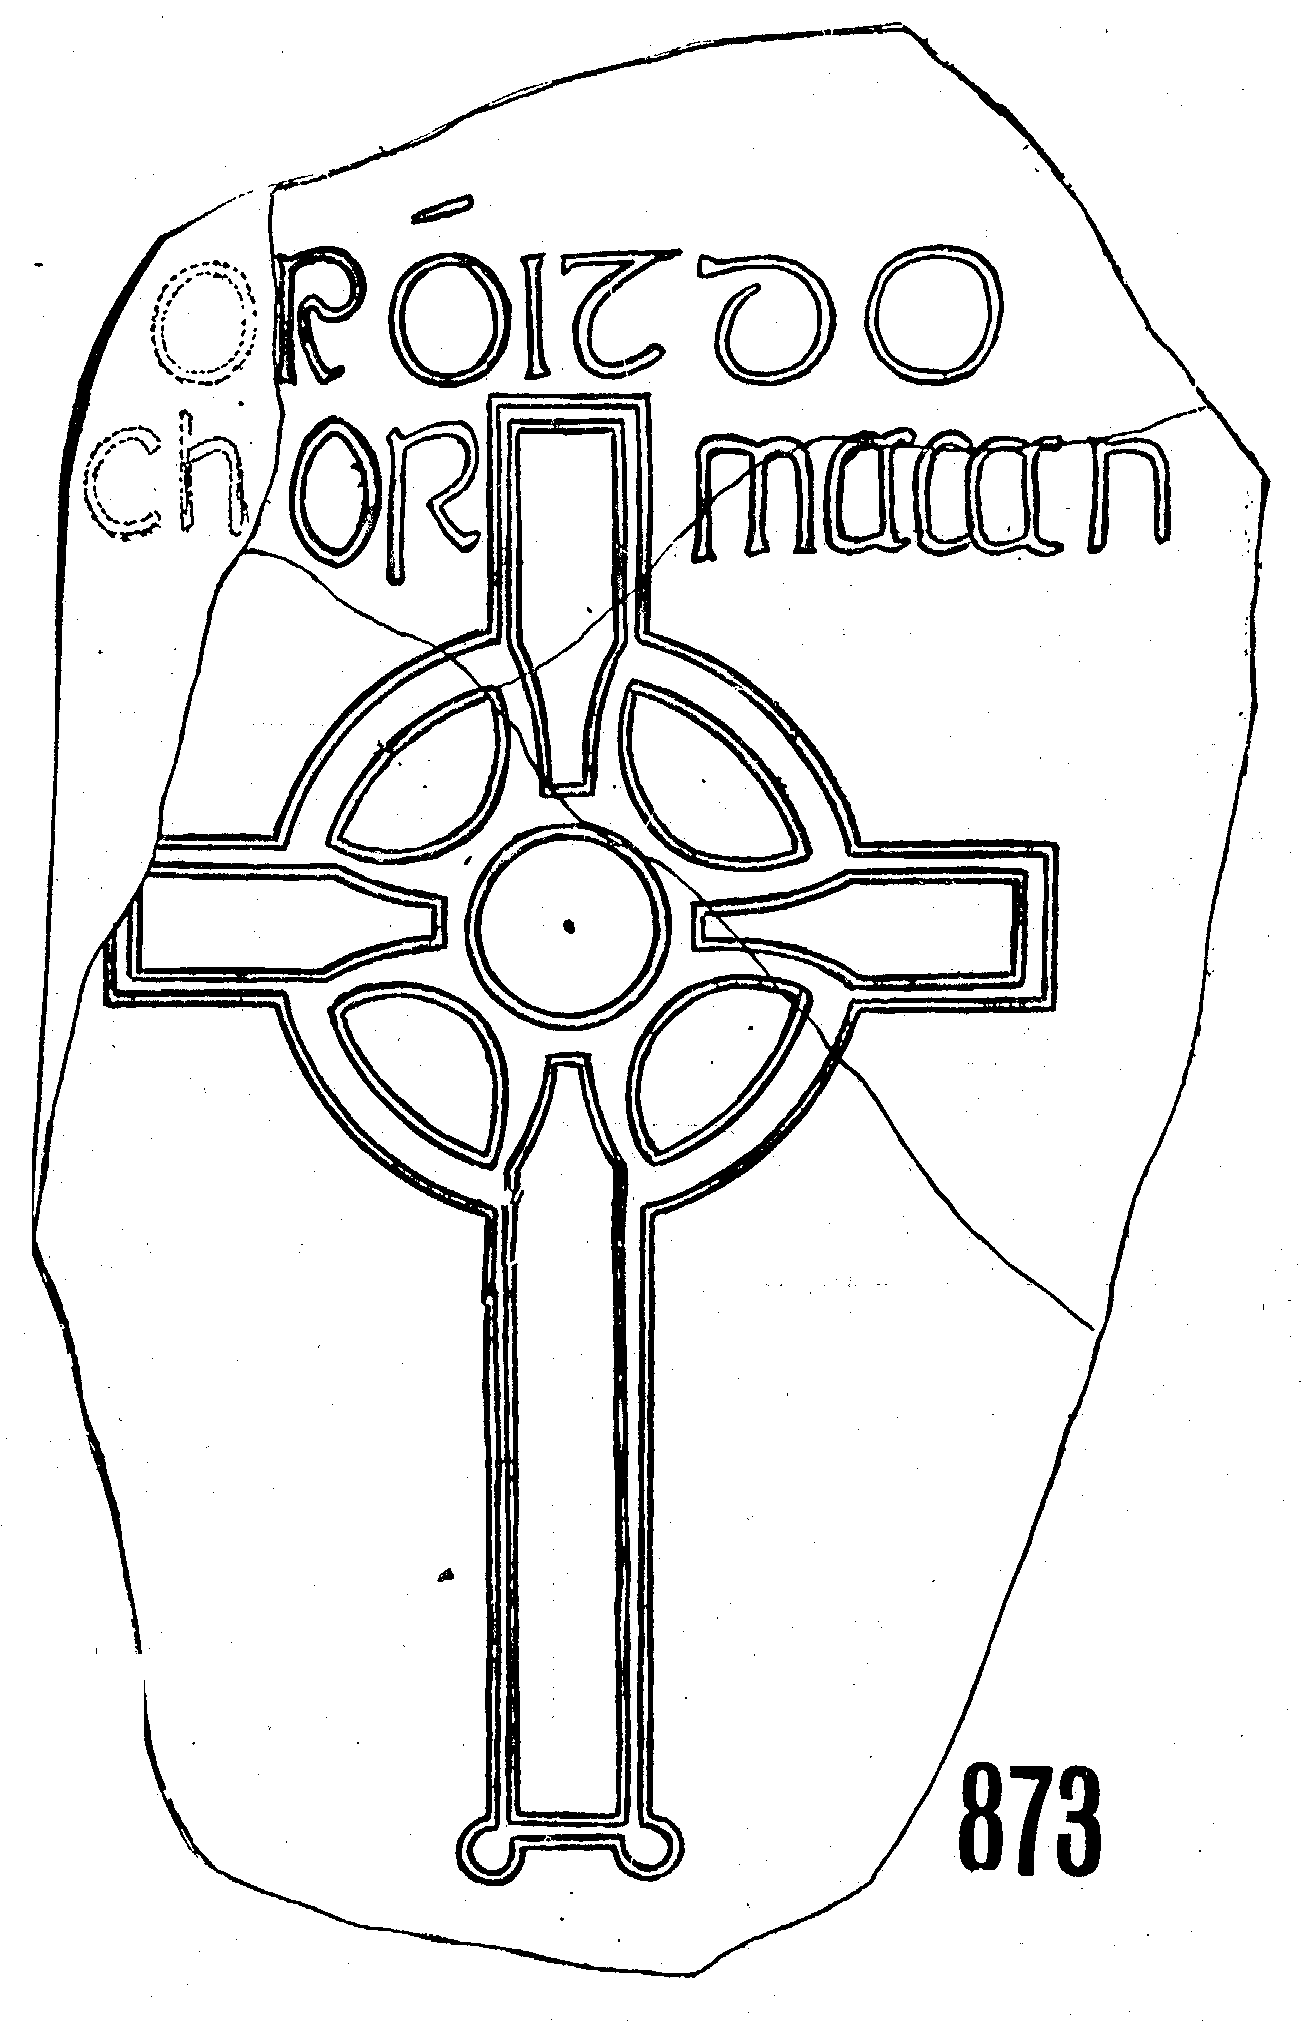 oróit do
chormacan
873